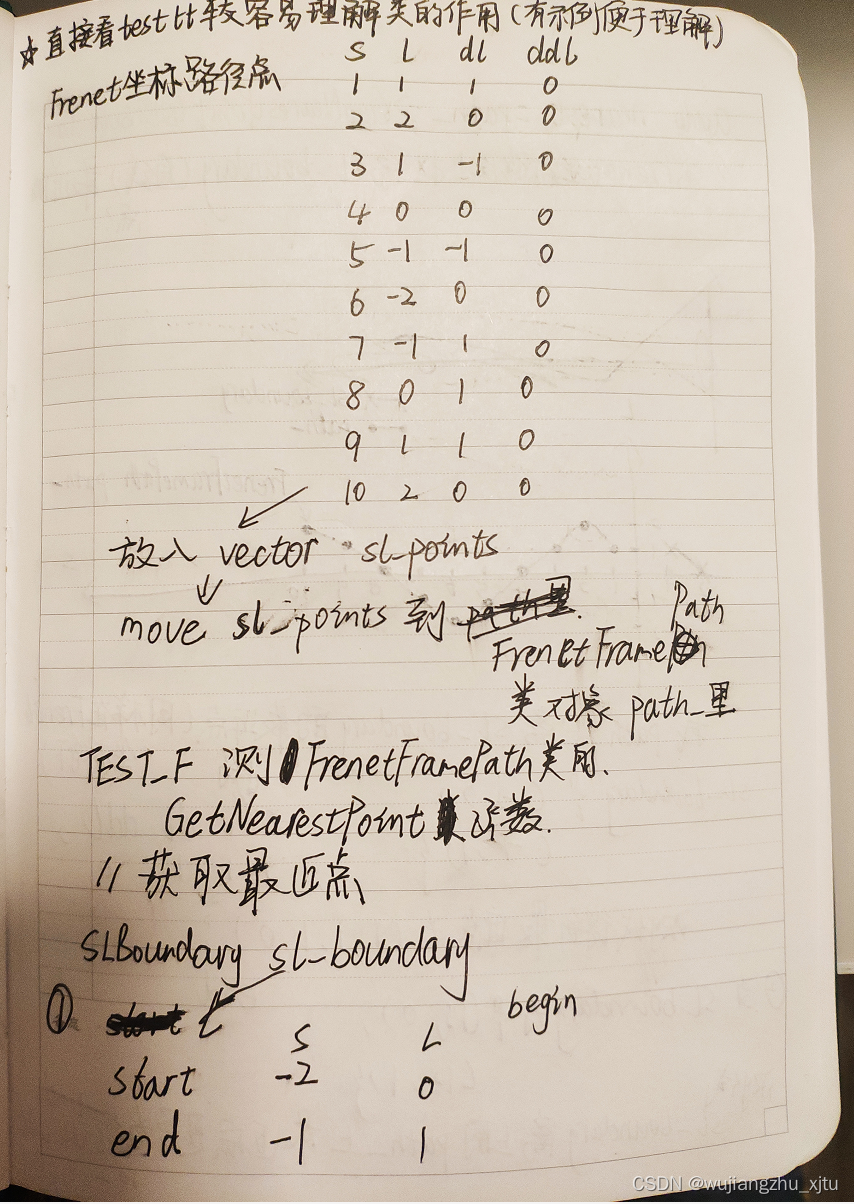 ☆直接看test比较容易理解类的作用(有示例便于理解)
Frenet坐标路径点
S L dl ddl
1 1 1 0
2 2 0 0
3 1 -1 0
4 0 0 0
5 -1 -1 0
6 -2 0 0
7 -1 1 0
8 0 1 0
9 1 1 0
10 2 0 0
放入 vector sl_points
move sl_points 到 path里.
FrenetFramePath
类对象 path_里
TEST_F 测 FrenetFramePath类的.
GetNearestPoint 函数.
// 获取最近点
SLBoundary sl_boundary
① start
S L begin
start -2 0
end -1 1
CSDN @wujiangzhu_xjtu